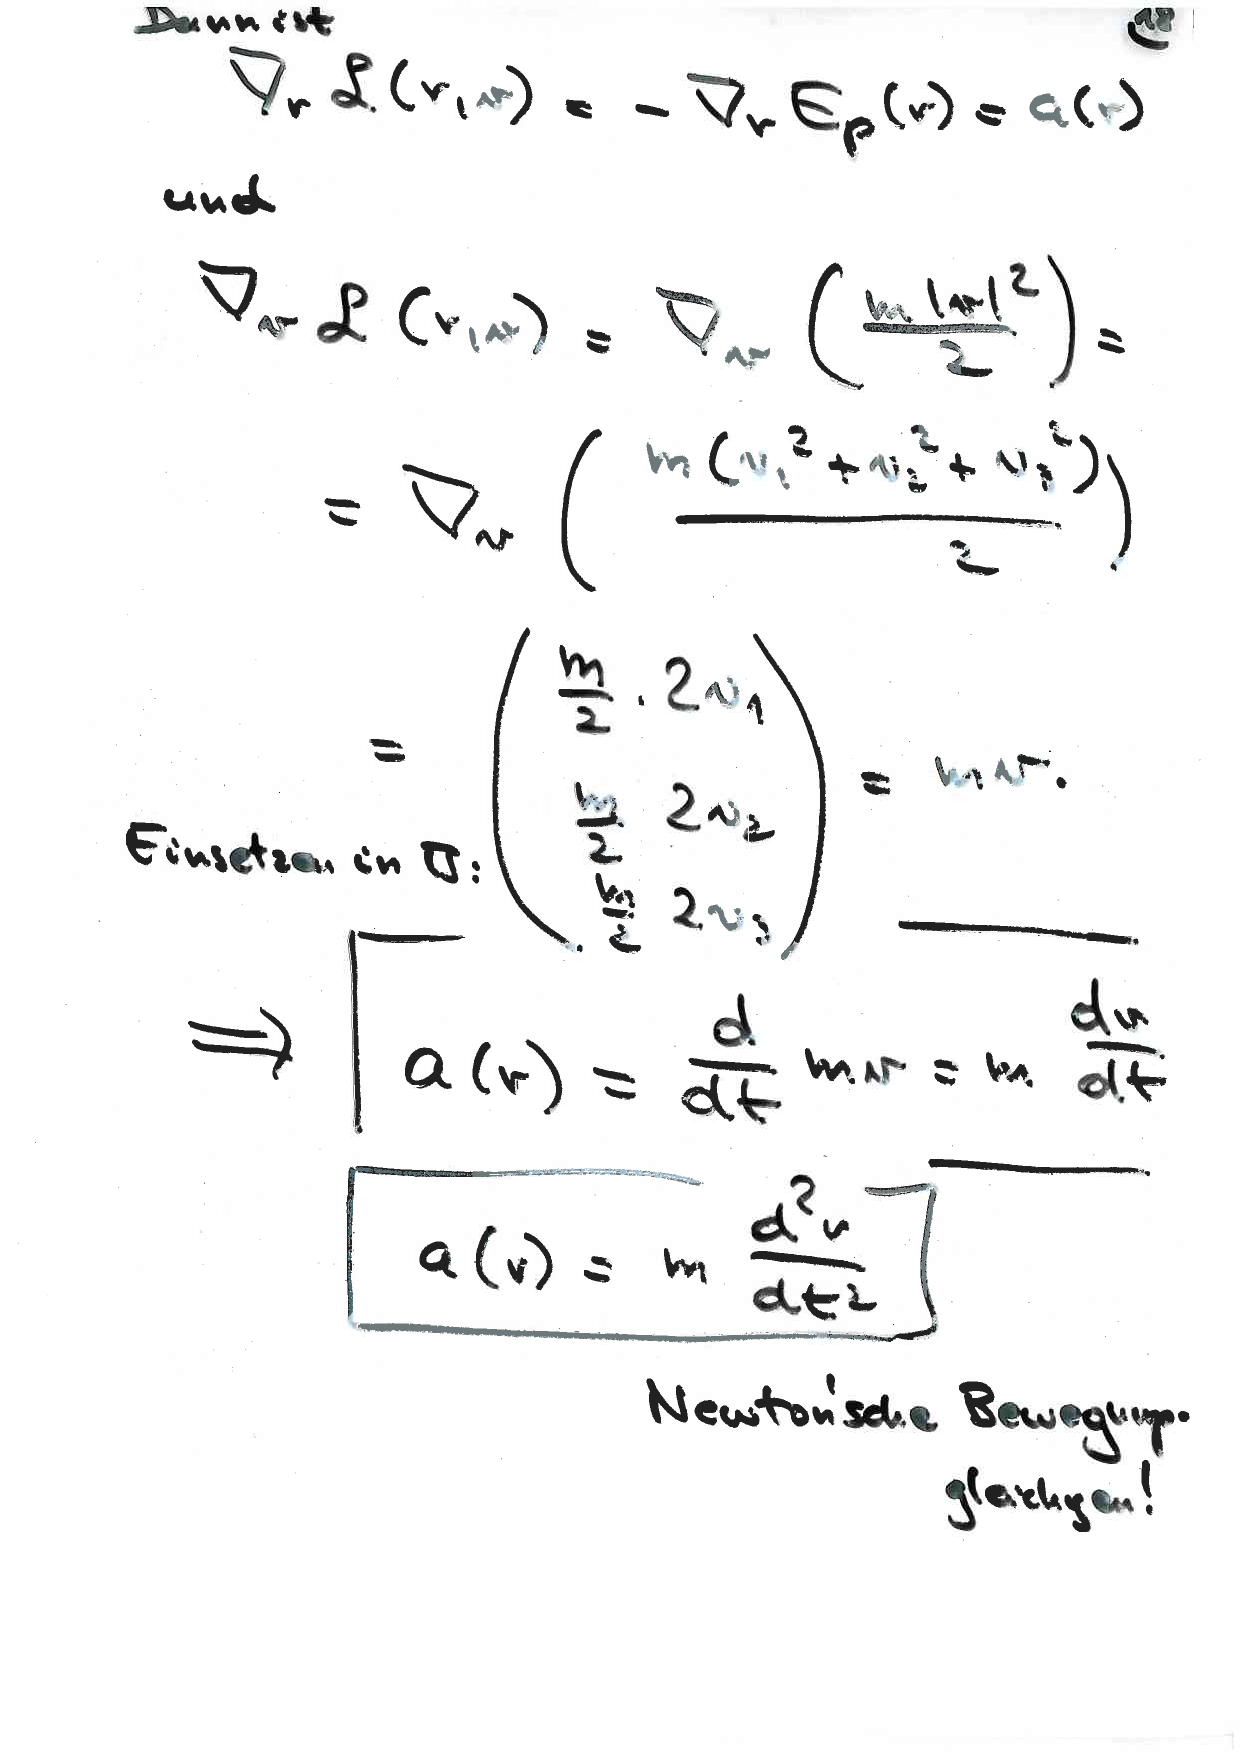 Dann ist 18
∇_r ℒ(r,v) = - ∇_r E_p(r) = a(r)
und
∇_v ℒ(r,v) = ∇_v (m|v|²/2) =
= ∇_v (m(v₁²+v₂²+v₃²)/2)
= (m/2 · 2v₁
m/2 2v₂
m/2 2v₃) = mv.
Einsetzen in :
⟹ a(r) = d/dt mv = m dv/dt
a(r) = m d²r/dt²
Newton'sche Bewegungs-
gleichgen!